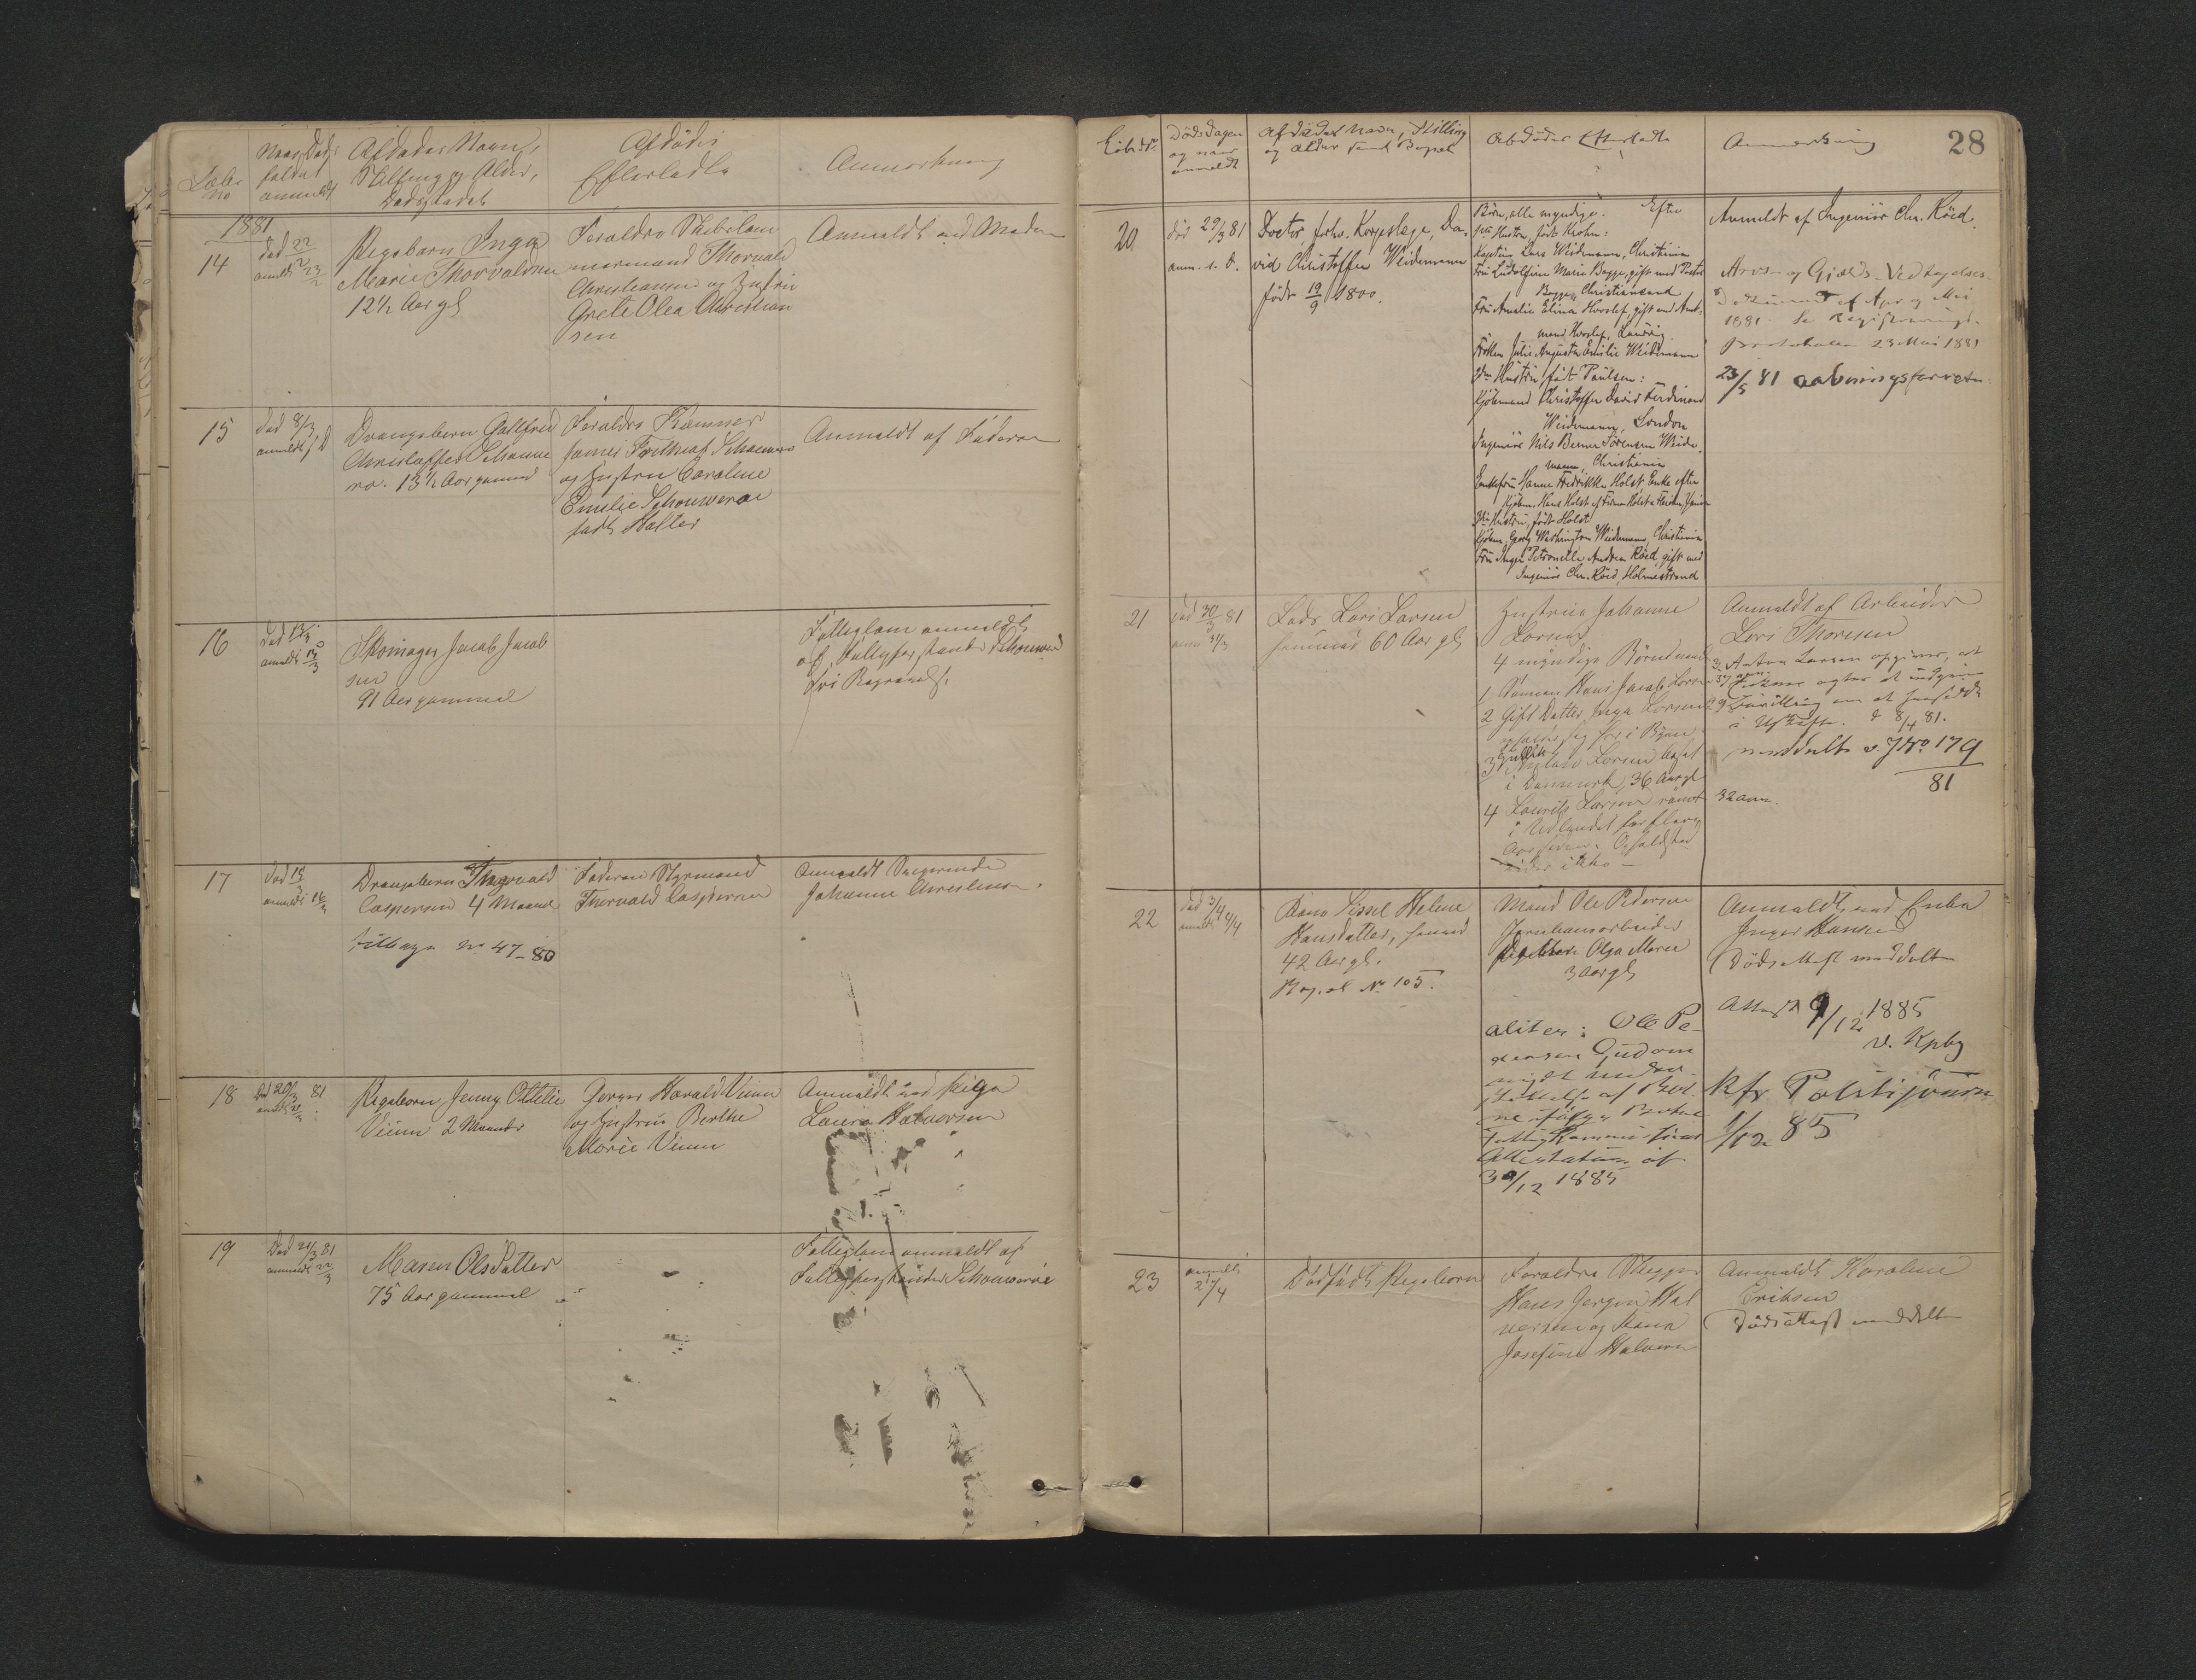 Løbe
No
Naar Død-
faldet
anmeldt
Afdødes Navn,
Stilling og Alder,
Dødsstedet
Afdødes
Efterladte
Anmærkning
1881
14
død 22/2
anmeldt 23/2
Pigebarn Inga
Marie Thorvaldsen
12½ Aar gl
Forældre Skibstøm
mermand Thorvald
Christiansen og Hustru
Grete Olea Christian
sen
Anmeldt ved Moderen
15
død 8/3
anmeldt s. D
Drengebarn Gallfred
Christoffer Schouwe
ro. 13½ Aar gammel
Forældre Kæmner
og Hustru Caroline
Emilie Schouweroe
født Holter
Anmeldt af Faderen
16
død 13/3
anmeldt 15/3
Skomager Jacob Jacob
sen
91 Aar gammel
Fattiglem anmeldt
af Fattigforstander Schouwero
17
død 15/3
anmeldt 16/3
Drengebarn Thorvald
Caspersen 4 Maaned
tilbage No 47-80
Faderen Styrmand
Thorvald Caspersen
Anmeldt
Johanne Christensen
18
Død 20/3 81
anmeldt 21/3
Pigebarn Jenny Ottilie
Viium 2 Maaneder
Gørger Harald Viium
og Hustru Berthe
Marie Viium
Anmeldt ved Pige
Laura Halvorsen
19
Død 21/3 81
anmeldt 22/3
Maren Olsdatter
75 Aar gammel
Fattiglem anmeldt af
Fattigforstander Schouweroe
28
Løbe No
Dødsdagen
og naar
anmeldt
Afdødes Navn, Stilling
og Alder samt Bopæl
Afdødes Efterladte
Anmerkning
20
død 29/3 81
anm. s. D.
Doctor, forhv. Korpslæge, Da-
vid Christoffer Weidemann
født 19/9 1800.
Børn, alle myndige. Efter
1ste Hustru, født Krohn:
Kaptein Lars Weidemann, Christiania
Fru Ludolfine Marie Bugge, gift med Pastor
Bugge, Christianssand
Fru Amalie Elina Horslef, gift med Amt-
mand Horslef, Lemvig
Frøken Julie Augusta Emilie Weidemann
2den Hustru født Paulsen:
Kjøbmand Christoffer David Ferdinand
Weidemann, London
Ingeniør Nils Berner Sørensen Weide-
mann, Christiania
Enkefru Hanne Fredrikke Holst, Enke efter
Kjøbm. Hans Holst af Firma Holst
3die Hustru, født Holst
Kjøbm. Georg Washington Weidemann, Christiania
Fru Inger Petronelle Andrea Röed, gift med
Ingeniør Chr. Röed, Holmestrand
Anmeldt af Ingeniør Chr. Röed.
Arvs- og Gjælds-Vedtagelses-
Dokument af Apr og Mai
1881. Se Registrerings-
Protokollen 23 Mai 1881
23/5 81 Aabningsforretn.
21
død 30/3 81
anm 31/3
Lods Lars Larsen
60 Aar gl
Hustru Johanne
Larsen
4 myndige Børn
1 Sømand Hans Jacob Larsen
2 Gift Datter Inga Larsen
3 Anton Larsen bosat
i Danmark, 36 Aar gl
4 Laurits Larsen rømt
i Udlandet for flere
Aar siden. Opholdssted
vides ikke —
Anmeldt af Arbeider
Lars Thoresen
3. Anton Larsen opgives, at
Enken agter at indgive
Bevilling om at hensidde
i Uskifte. d 8/4 81.
meddelt v. J No. 179
81
32 aar.
22
død 3/4
anmeldt 4/4
Kone Sissel Helene
Hansdatter,
42 Aar gl.
Bopæl No 105.
Mand Ole Pedersen
Jernbanearbeider
Pigebarn Olga Marie
3 Aar gl
aliter: Ole Pe-
dersen Gudom
Attestation af
30/12 1885
Anmeldt ved Enke
Inger Hansen
Dødsattest meddelt
Attest 9/12 1885
v. Kpby
Kfr Politijourn
1/12 85
23
anmeldt
21/4
Dødfødt Pigebarn
Forældre
Hans Jørgen Hal
vorsen og Kone
Josefine Halvorsen
Anmeldt Karoline
Eriksen
Dødsattest meddelt